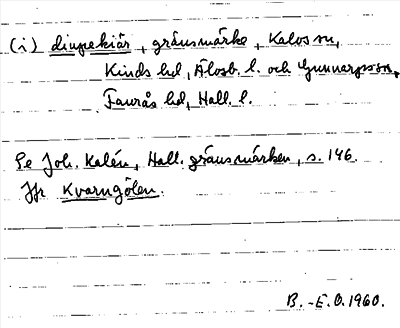 (i) diupekiär, gränsmärke, Kalvs sn,
Kinds hd, Älvsb. l. och Gunnarps sn,
Faurås hd, Hall. l.
Se Joh. Kalén, Hall. gränsmärken, s. 146.
Jfr Kvarngölen.
B.-E.O. 1960.